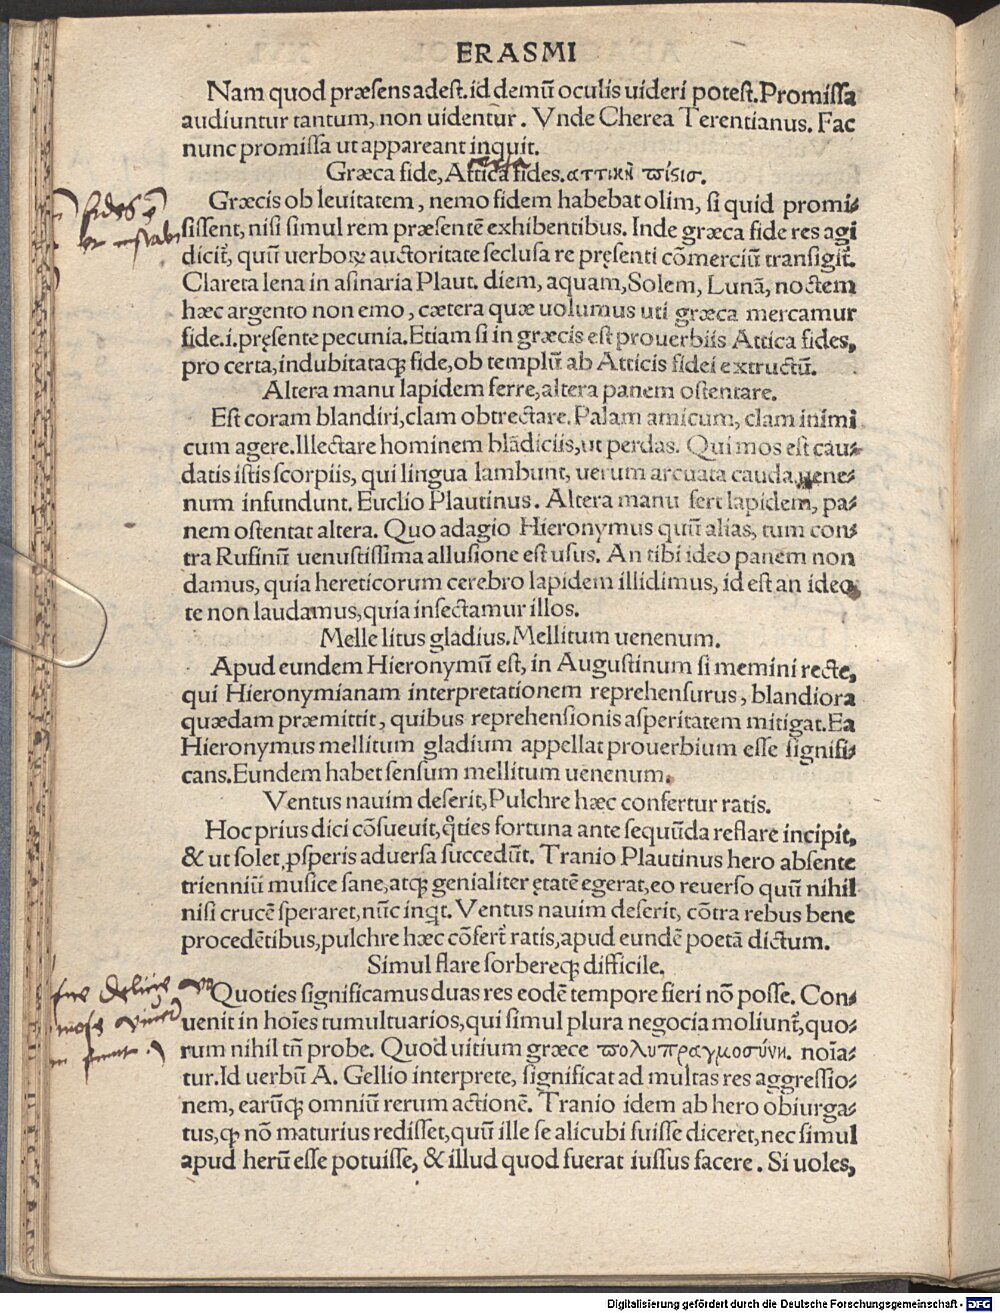 ERASMI
Nam quod præsens adest.id demū oculis uideri potest.Promissa
audiuntur tantum, non uidentur. Vnde Cherea Terentianus. Fac
nunc promissa ut appareant inquit.
Græca fide, Attica fides. αττικὴ πίσισ.
Græcis ob leuitatem, nemo fidem habebat olim, si quid promi-
sissent, nisi simul rem præsentē exhibentibus. Inde græca fide res agi
dicit̃, quū uerboꝝ auctoritate seclusa re pręsenti cōmerciū transigit̃.
Clareta lena in asinaria Plaut. diem, aquam, Solem, Lunā, noctem
hæc argento non emo, cætera quæ uolumus uti græca mercamur
fide.i.pręsente pecunia.Etiam si in græcis est prouerbiis Attica fides,
pro certa, indubitataqꝫ fide, ob templū ab Atticis fidei extructū.
Altera manu lapidem ferre, altera panem ostentare.
Est coram blandiri, clam obtrectare. Palam amicum, clam inimi
cum agere. Illectare hominem blādiciis, ut perdas. Qui mos est cau-
datis istis scorpiis, qui lingua lambunt, uerum arcuata cauda uene-
num infundunt. Euclio Plautinus. Altera manu fert lapidem, pa-
nem ostentat altera. Quo adagio Hieronymus quū alias, tum con-
tra Rufinū uenustissima allusione est usus. An tibi ideo panem non
damus, quia hereticorum cerebro lapidem illidimus, id est an ideo
te non laudamus, quia insectamur illos.
Melle litus gladius. Mellitum uenenum.
Apud eundem Hieronymū est, in Augustinum si memini recte,
qui Hieronymianam interpretationem reprehensurus, blandiora
quædam præmittit, quibus reprehensionis asperitatem mitigat. Ea
Hieronymus mellitum gladium appellat prouerbium esse signifi-
cans. Eundem habet sensum mellitum uenenum.
Ventus nauim deserit, Pulchre hæc confertur ratis.
Hoc prius dici cōsueuit, q̃ties fortuna ante sequūda reflare incipit,
& ut solet ꝓsperis aduersa succedūt. Tranio Plautinus hero absente
trienniū musice sane, atqꝫ genialiter ętatē egerat, eo reuerso quū nihil
nisi crucē speraret, nūc inqt. Ventus nauim deserit, cōtra rebus bene
procedētibus, pulchre hæc cōfert̃ ratis, apud eundē poetā dictum.
Simul flare sorbereqꝫ difficile.
Quoties significamus duas res eodē tempore fieri nō posse. Con-
uenit in hoīes tumultuarios, qui simul plura negocia moliunt̃, quo-
rum nihil tñ probe. Quod uitium græce πολυπραγμοσύνη. noīa-
tur. Id uerbū A. Gellio interprete, significat ad multas res aggressio-
nem, earūqꝫ omniū rerum actionē. Tranio idem ab hero obiurga-
tus, ꝙ nō maturius redisset, quū ille se alicubi fuisse diceret, nec simul
apud herū esse potuisse, & illud quod fuerat iussus facere. Si uoles,
Digitalisierung gefördert durch die Deutsche Forschungsgemeinschaft - DFG